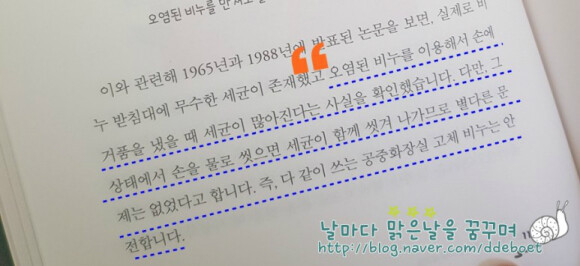 오염된 비누를 만져도 될
이와 관련해 1965년과 1988년에 발표된 논문을 보면, 실제로 비
누 받침대에 무수한 세균이 존재했고 오염된 비누를 이용해서 손에
거품을 냈을 때 세균이 많아진다는 사실을 확인했습니다. 다만, 그
상태에서 손을 물로 씻으면 세균이 함께 씻겨 나가므로 별다른 문
제는 없었다고 합니다. 즉, 다 같이 쓰는 공중화장실 고체 비누는 안
전합니다.
날마다 맑은날을 꿈꾸며
http://blog.naver.com/ddeboet